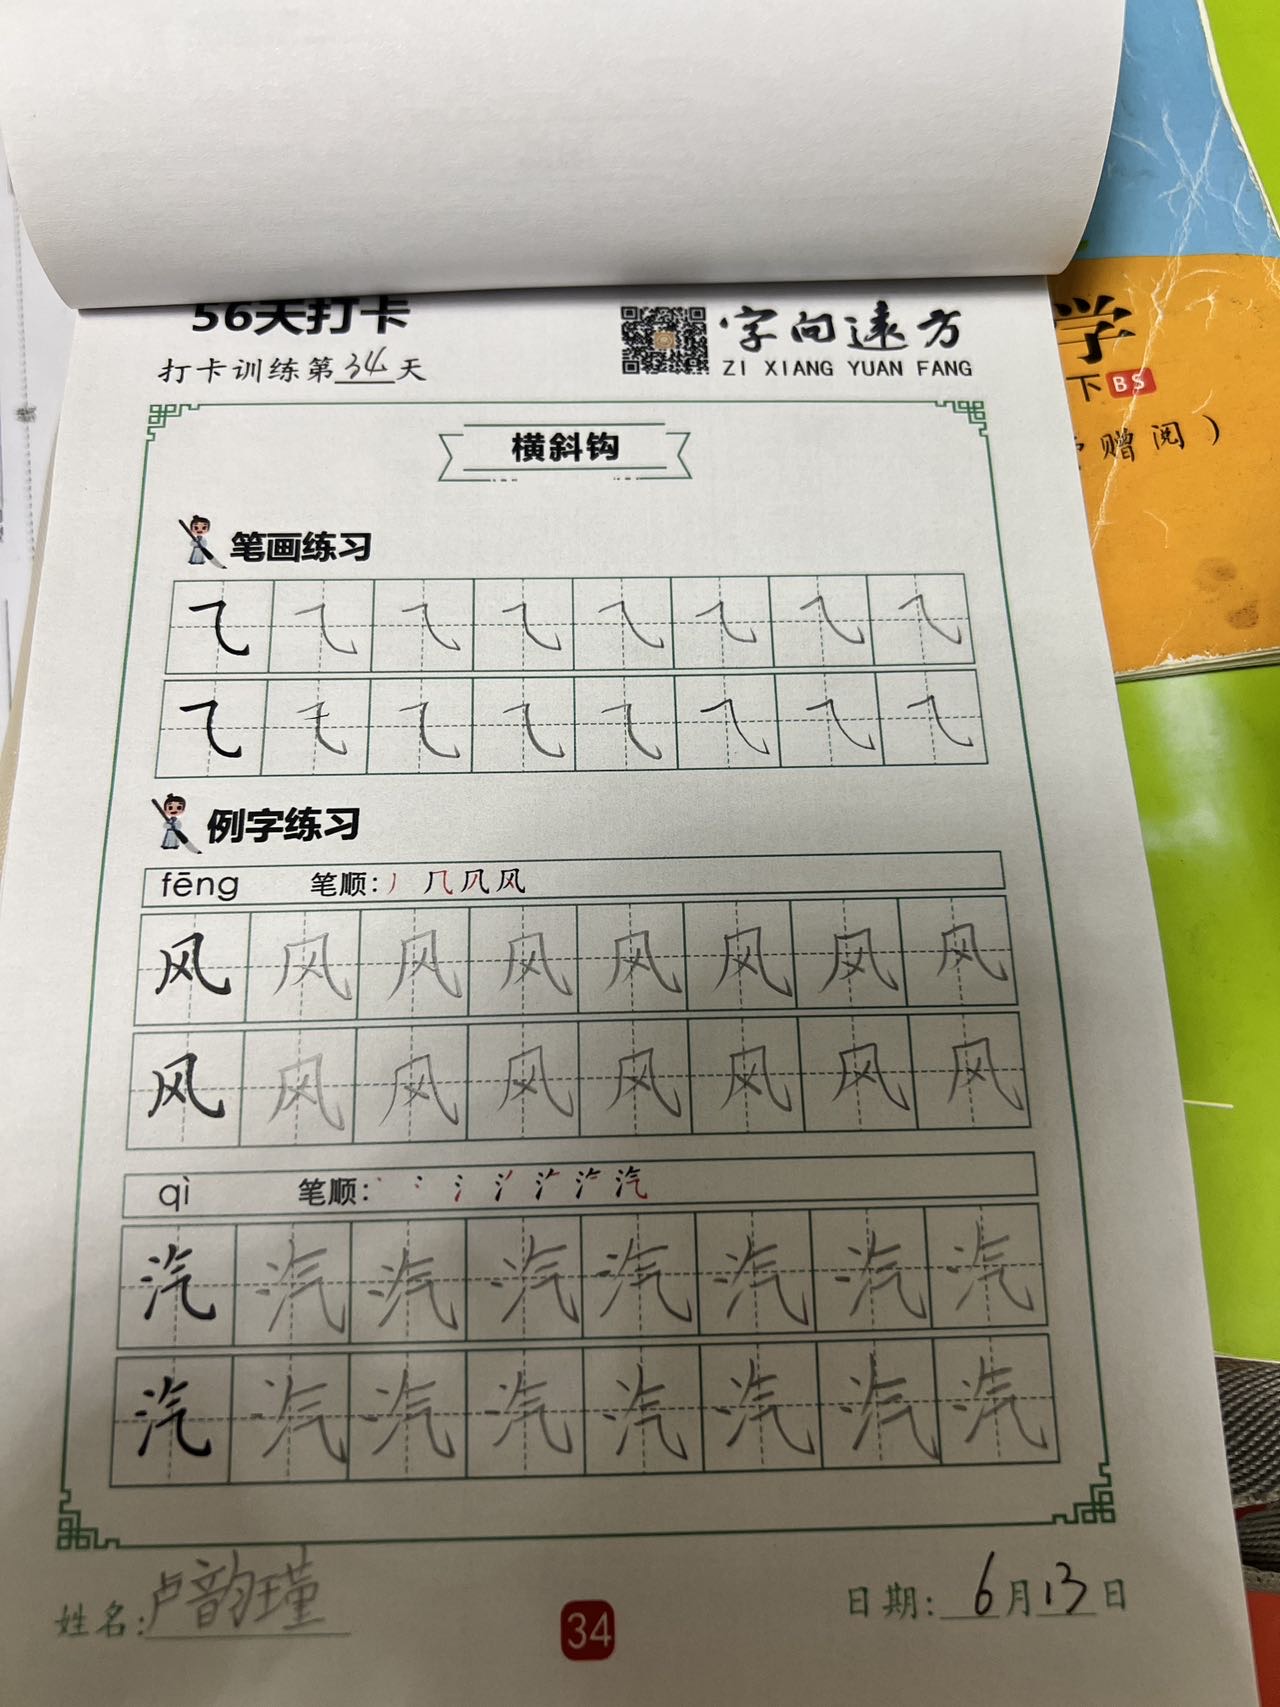 56天打卡
打卡训练第34天
字向远方
ZI XIANG YUAN FANG
学
下 BS
赠阅）
横斜钩
笔画练习
⺄ ⺄ ⺄ ⺄ ⺄ ⺄ ⺄ ⺄
⺄ ⺄ ⺄ ⺄ ⺄ ⺄ ⺄ ⺄
例字练习
fēng 笔顺：丿 几 凨 风
风 风 风 风 风 风 风 风
风 风 风 风 风 风 风 风
qì 笔顺：
汽 汽 汽 汽 汽 汽 汽 汽
汽 汽 汽 汽 汽 汽 汽 汽
姓名：卢韵瑾
34
日期：6月13日